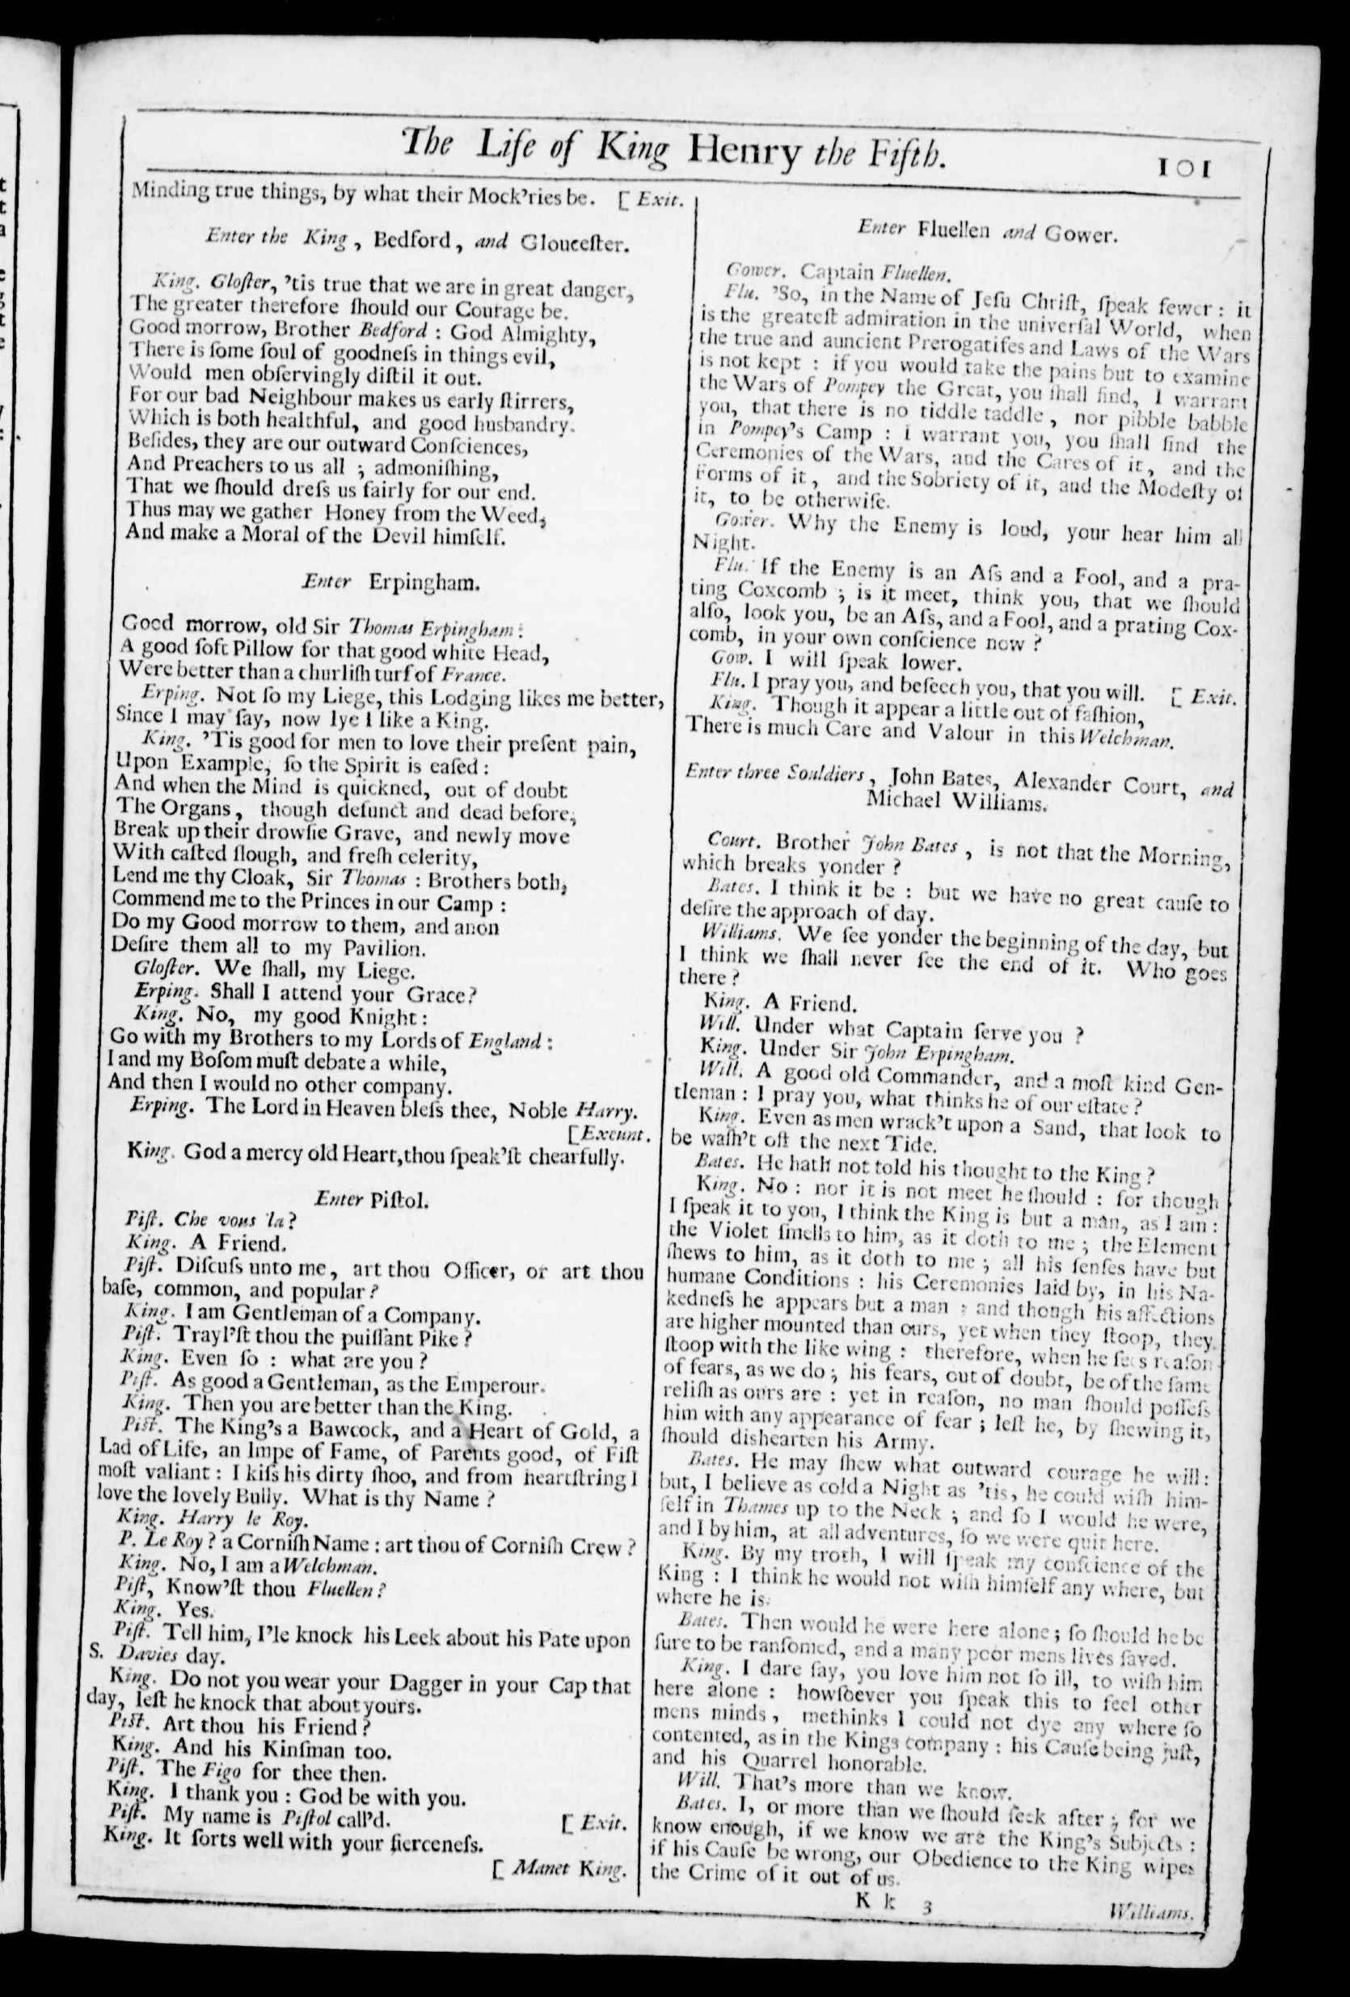 The Life of King Henry the Fifth. 101
Minding true things, by what their Mock'ries be. [ Exit.
Enter the King, Bedford, and Glouceſter.
King. Gloſter, 'tis true that we are in great danger,
The greater therefore ſhould our Courage be.
Good morrow, Brother Bedford : God Almighty,
There is ſome ſoul of goodneſs in things evil,
Would men obſervingly diſtil it out.
For our bad Neighbour makes us early ſtirrers,
Which is both healthful, and good husbandry.
Beſides, they are our outward Conſciences,
And Preachers to us all ; admoniſhing,
That we ſhould dreſs us fairly for our end.
Thus may we gather Honey from the Weed,
And make a Moral of the Devil himſelf.
Enter Erpingham.
Good morrow, old Sir Thomas Erpingham :
A good ſoft Pillow for that good white Head,
Were better than a churliſh turf of France.
Erping. Not ſo my Liege, this Lodging likes me better,
Since I may ſay, now lye I like a King.
King. 'Tis good for men to love their preſent pain,
Upon Example, ſo the Spirit is eaſed :
And when the Mind is quickned, out of doubt
The Organs, though defunct and dead before,
Break up their drowſie Grave, and newly move
With caſted ſlough, and freſh celerity,
Lend me thy Cloak, Sir Thomas : Brothers both,
Commend me to the Princes in our Camp :
Do my Good morrow to them, and anon
Deſire them all to my Pavilion.
Gloſter. We ſhall, my Liege.
Erping. Shall I attend your Grace?
King. No, my good Knight :
Go with my Brothers to my Lords of England :
I and my Boſom muſt debate a while,
And then I would no other company.
Erping. The Lord in Heaven bleſs thee, Noble Harry.
[ Exeunt.
King. God a mercy old Heart, thou ſpeak'ſt chearfully.
Enter Piſtol.
Piſt. Che vous la?
King. A Friend.
Piſt. Diſcuſs unto me, art thou Officer, or art thou
baſe, common, and popular?
King. I am Gentleman of a Company.
Piſt. Trayl'ſt thou the puiſſant Pike?
King. Even ſo : what are you?
Piſt. As good a Gentleman, as the Emperour.
King. Then you are better than the King.
Piſt. The King's a Bawcock, and a Heart of Gold, a
Lad of Life, an Impe of Fame, of Parents good, of Fiſt
moſt valiant : I kiſs his dirty ſhoo, and from heartſtring I
love the lovely Bully. What is thy Name?
King. Harry le Roy.
P. Le Roy? a Corniſh Name : art thou of Corniſh Crew?
King. No, I am a Welchman.
Piſt, Know'ſt thou Fluellen?
King. Yes.
Piſt. Tell him, I'le knock his Leek about his Pate upon
S. Davies day.
King. Do not you wear your Dagger in your Cap that
day, leſt he knock that about yours.
Piſt. Art thou his Friend?
King. And his Kinſman too.
Piſt. The Figo for thee then.
King. I thank you : God be with you.
Piſt. My name is Piſtol call'd. [ Exit.
King. It ſorts well with your fierceneſs.
[ Manet King.
Enter Fluellen and Gower.
Gower. Captain Fluellen.
Flu. 'So, in the Name of Jeſu Chriſt, ſpeak fewer : it
is the greateſt admiration in the univerſal World, when
the true and auncient Prerogatifes and Laws of the Wars
is not kept : if you would take the pains but to examine
the Wars of Pompey the Great, you ſhall find, I warrant
you, that there is no tiddle taddle, nor pibble babble
in Pompey's Camp : I warrant you, you ſhall find the
Ceremonies of the Wars, and the Cares of it, and the
Forms of it, and the Sobriety of it, and the Modeſty of
it, to be otherwiſe.
Gower. Why the Enemy is loud, your hear him all
Night.
Flu. If the Enemy is an Aſs and a Fool, and a pra-
ting Coxcomb ; is it meet, think you, that we ſhould
alſo, look you, be an Aſs, and a Fool, and a prating Cox-
comb, in your own conſcience now?
Gow. I will ſpeak lower.
Flu. I pray you, and beſeech you, that you will. [ Exit.
King. Though it appear a little out of faſhion,
There is much Care and Valour in this Welchman.
Enter three Souldiers, John Bates, Alexander Court, and
Michael Williams.
Court. Brother John Bates, is not that the Morning,
which breaks yonder?
Bates. I think it be : but we have no great cauſe to
deſire the approach of day.
Williams. We ſee yonder the beginning of the day, but
I think we ſhall never ſee the end of it. Who goes
there?
King. A Friend.
Will. Under what Captain ſerve you?
King. Under Sir John Erpingham.
Will. A good old Commander, and a moſt kind Gen-
tleman : I pray you, what thinks he of our eſtate?
King. Even as men wrack't upon a Sand, that look to
be waſh't off the next Tide.
Bates. He hath not told his thought to the King?
King. No : nor it is not meet he ſhould : for though
I ſpeak it to you, I think the King is but a man, as I am :
the Violet ſmells to him, as it doth to me ; the Element
ſhews to him, as it doth to me ; all his ſenſes have but
humane Conditions : his Ceremonies laid by, in his Na-
kedneſs he appears but a man ; and though his affections
are higher mounted than ours, yet when they ſtoop, they
ſtoop with the like wing : therefore, when he ſees reaſon
of fears, as we do ; his fears, out of doubt, be of the ſame
reliſh as ours are : yet in reaſon, no man ſhould poſſeſs
him with any appearance of fear ; leſt he, by ſhewing it,
ſhould dishearten his Army.
Bates. He may ſhew what outward courage he will :
but, I believe as cold a Night as 'tis, he could wiſh him-
ſelf in Thames up to the Neck ; and ſo I would he were,
and I by him, at all adventures, ſo we were quit here.
King. By my troth, I will ſpeak my conſcience of the
King : I think he would not wiſh himſelf any where, but
where he is.
Bates. Then would he were here alone ; ſo ſhould he be
ſure to be ranſomed, and a many poor mens lives ſaved.
King. I dare ſay, you love him not ſo ill, to wiſh him
here alone : howſoever you ſpeak this to feel other
mens minds, methinks I could not dye any where ſo
contented, as in the Kings company : his Cauſe being juſt,
and his Quarrel honorable.
Will. That's more than we know.
Bates. I, or more than we ſhould ſeek after ; for we
know enough, if we know we are the King's Subjects :
if his Cauſe be wrong, our Obedience to the King wipes
the Crime of it out of us.
K k 3 Williams.